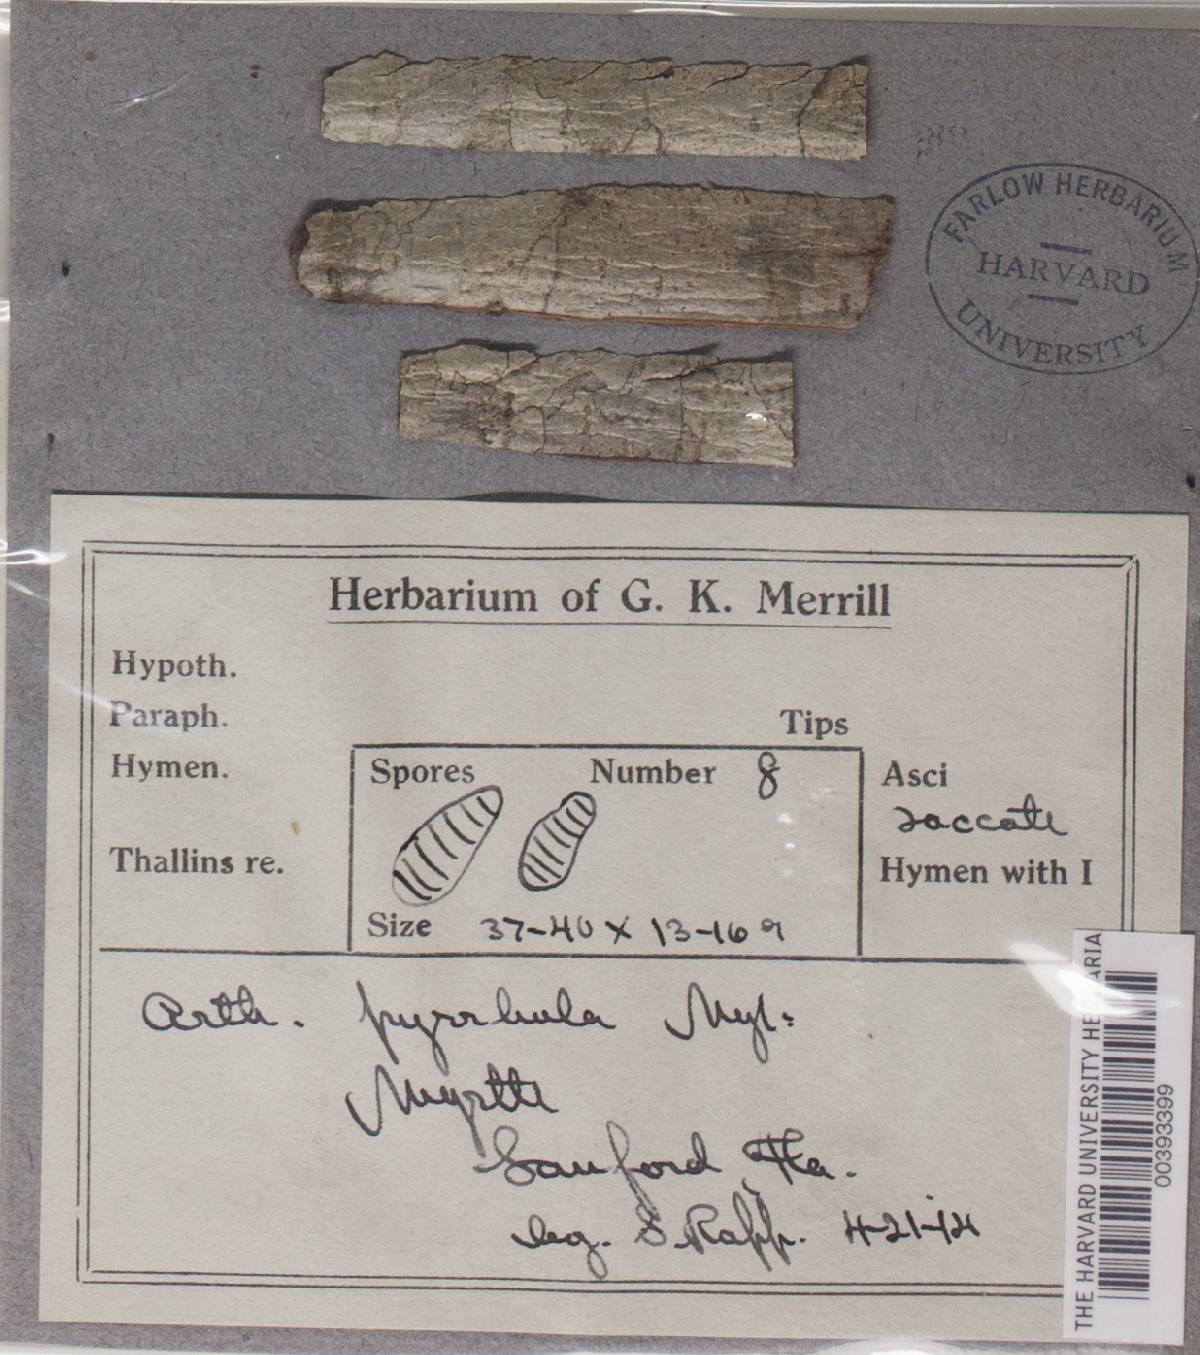 FARLOW HERBARIUM
HARVARD
UNIVERSITY
Herbarium of G. K. Merrill
Hypoth.
Paraph.
Tips
Hymen.
Spores Number 8
Asci
saccate
Thallins re.
Hymen with I
Size 37-40 X 13-16
Arth. pyrrhula Nyl.
Myrtle
Sanford Fla.
leg. S. Rapp. 4-21-14
THE HARVARD UNIVERSITY HERBARIA
00393399